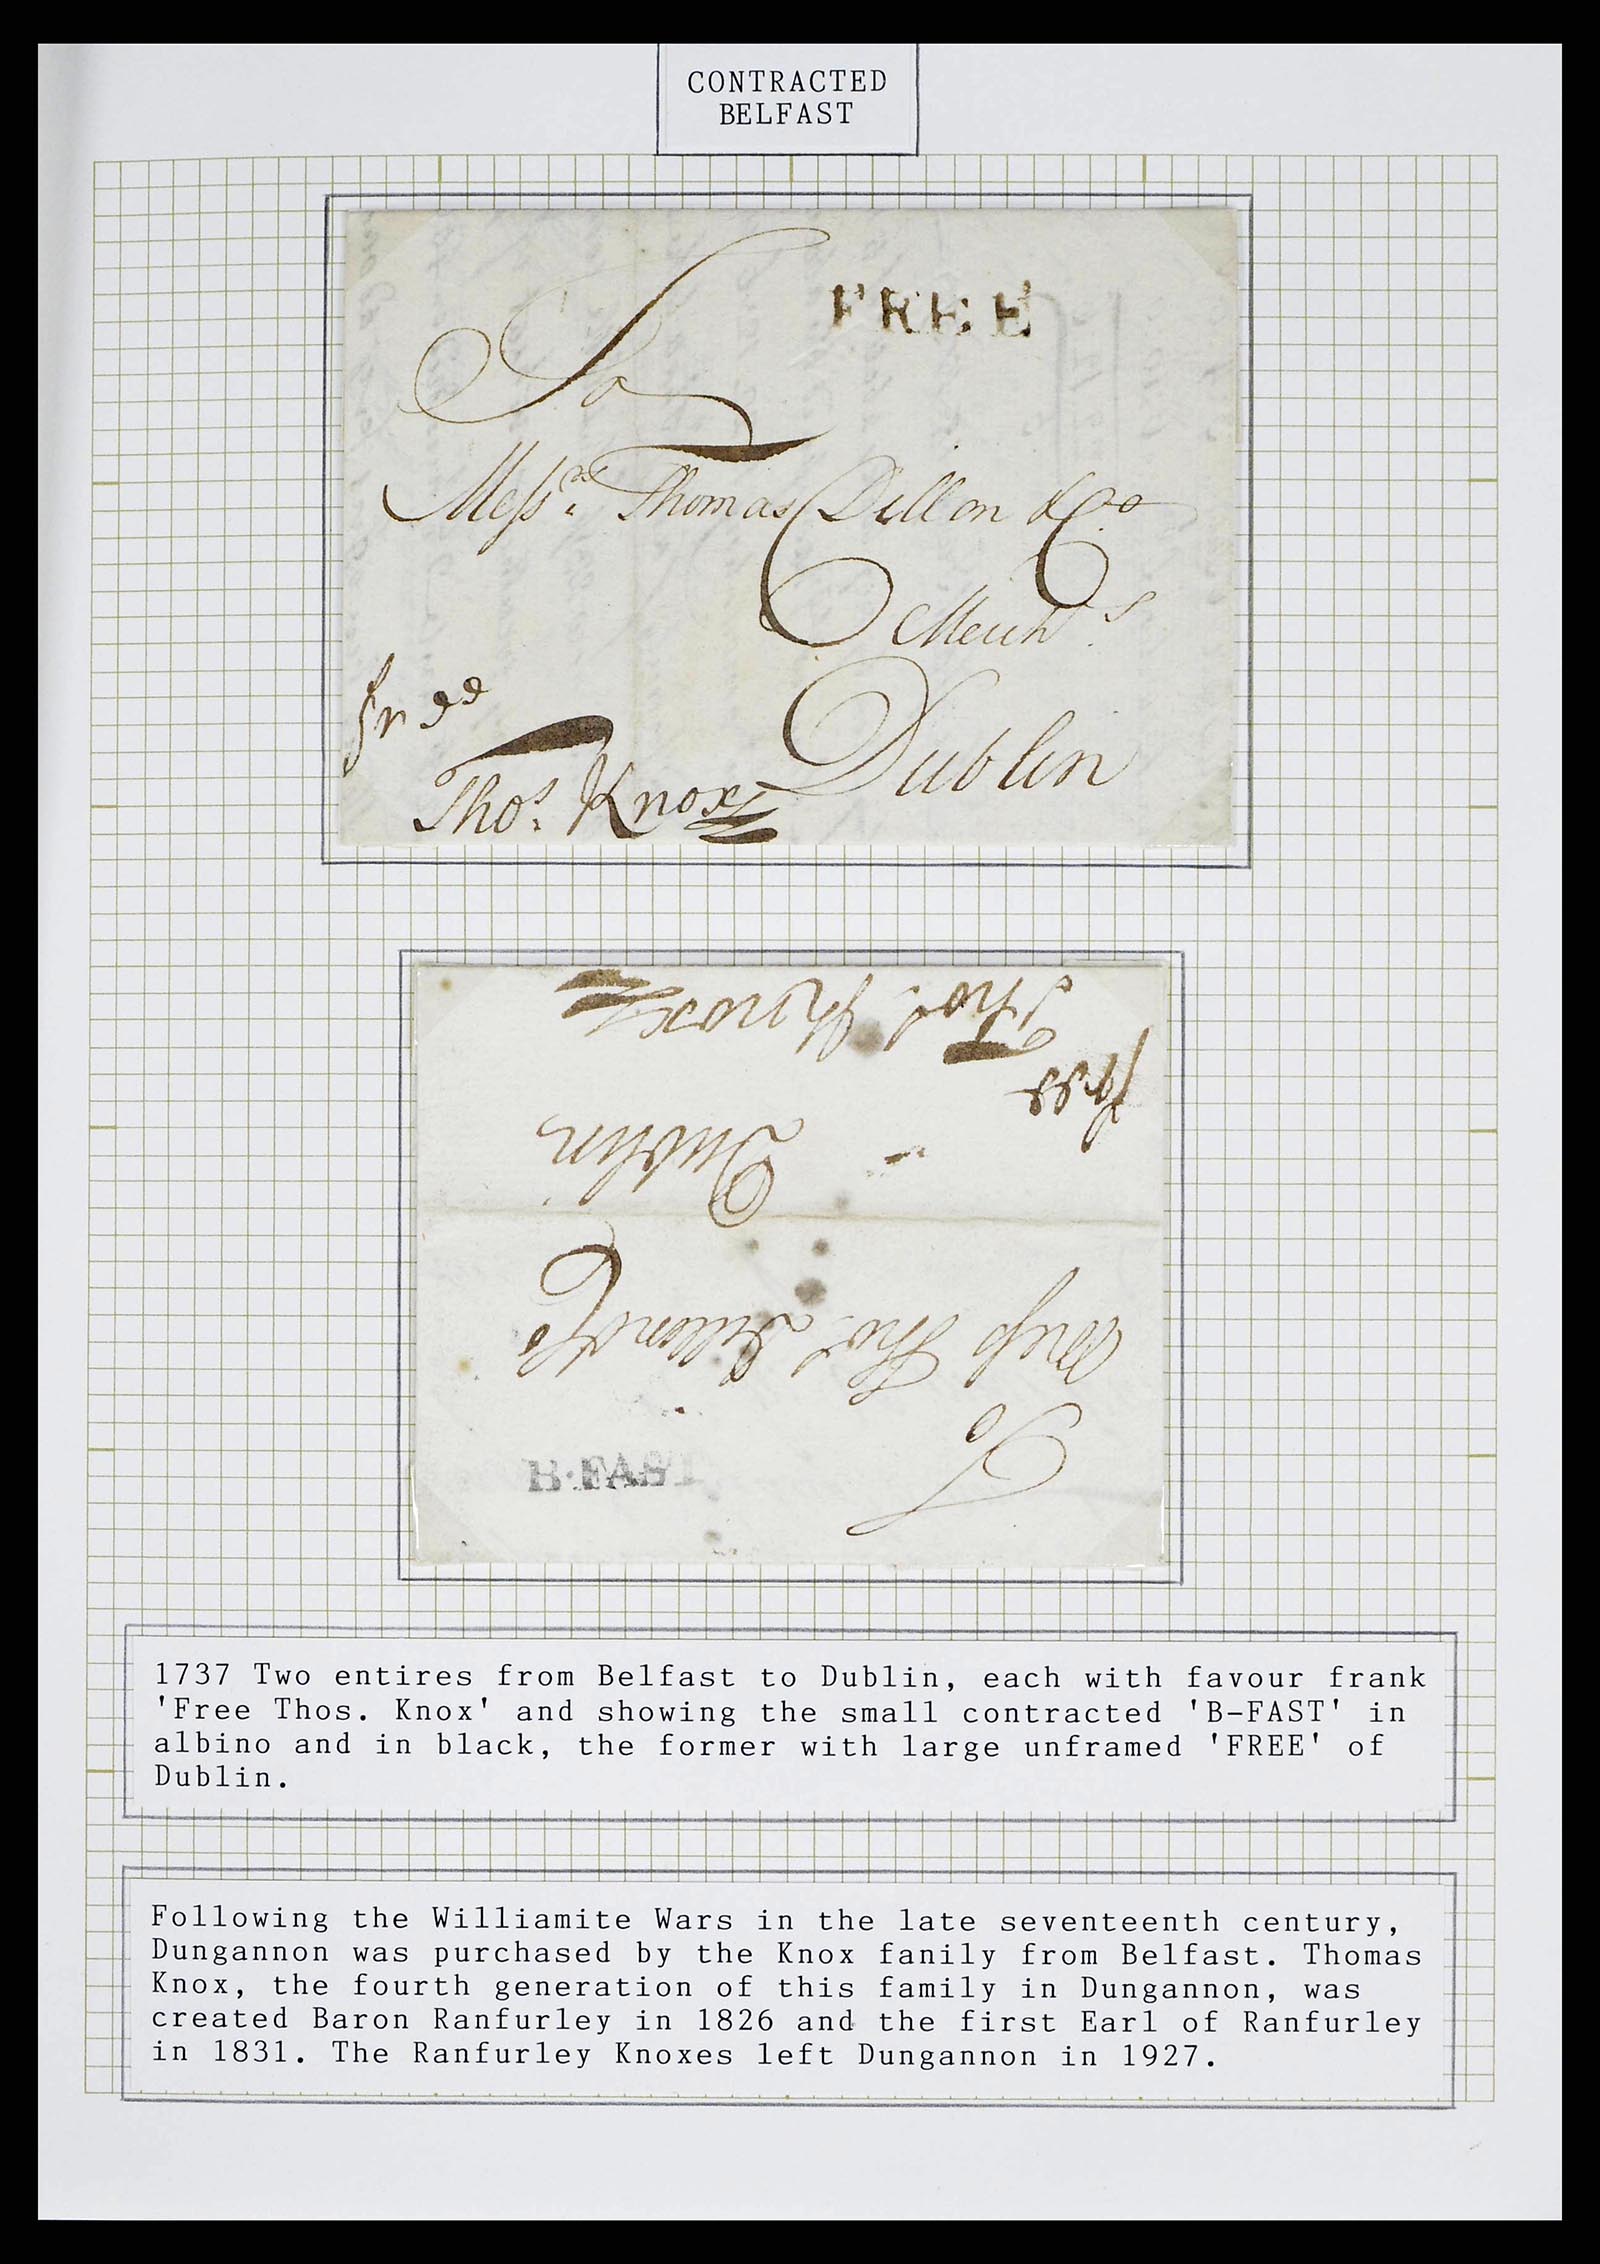 CONTRACTED
BELFAST
FREE
To
Messrs. Thomas Dillon & Co
Merchts.
Dublin
free
Thos. Knox
Thos. Knox
free
Dublin
Mess Thos. Dillon & Co
To
B·FAST
1737 Two entires from Belfast to Dublin, each with favour frank
'Free Thos. Knox' and showing the small contracted 'B-FAST' in
albino and in black, the former with large unframed 'FREE' of
Dublin.
Following the Williamite Wars in the late seventeenth century,
Dungannon was purchased by the Knox fanily from Belfast. Thomas
Knox, the fourth generation of this family in Dungannon, was
created Baron Ranfurley in 1826 and the first Earl of Ranfurley
in 1831. The Ranfurley Knoxes left Dungannon in 1927.